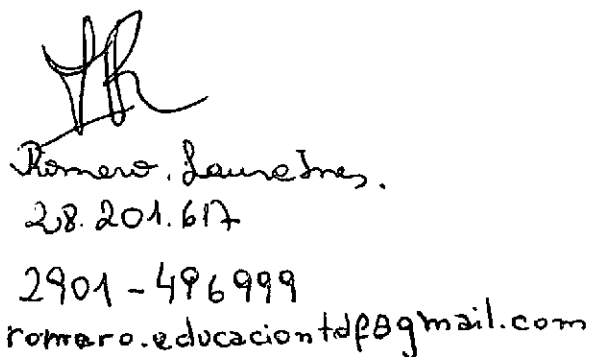 Romero, Laura Ines.
28.201.617
2901-496999
romero.educaciontdf@gmail.com